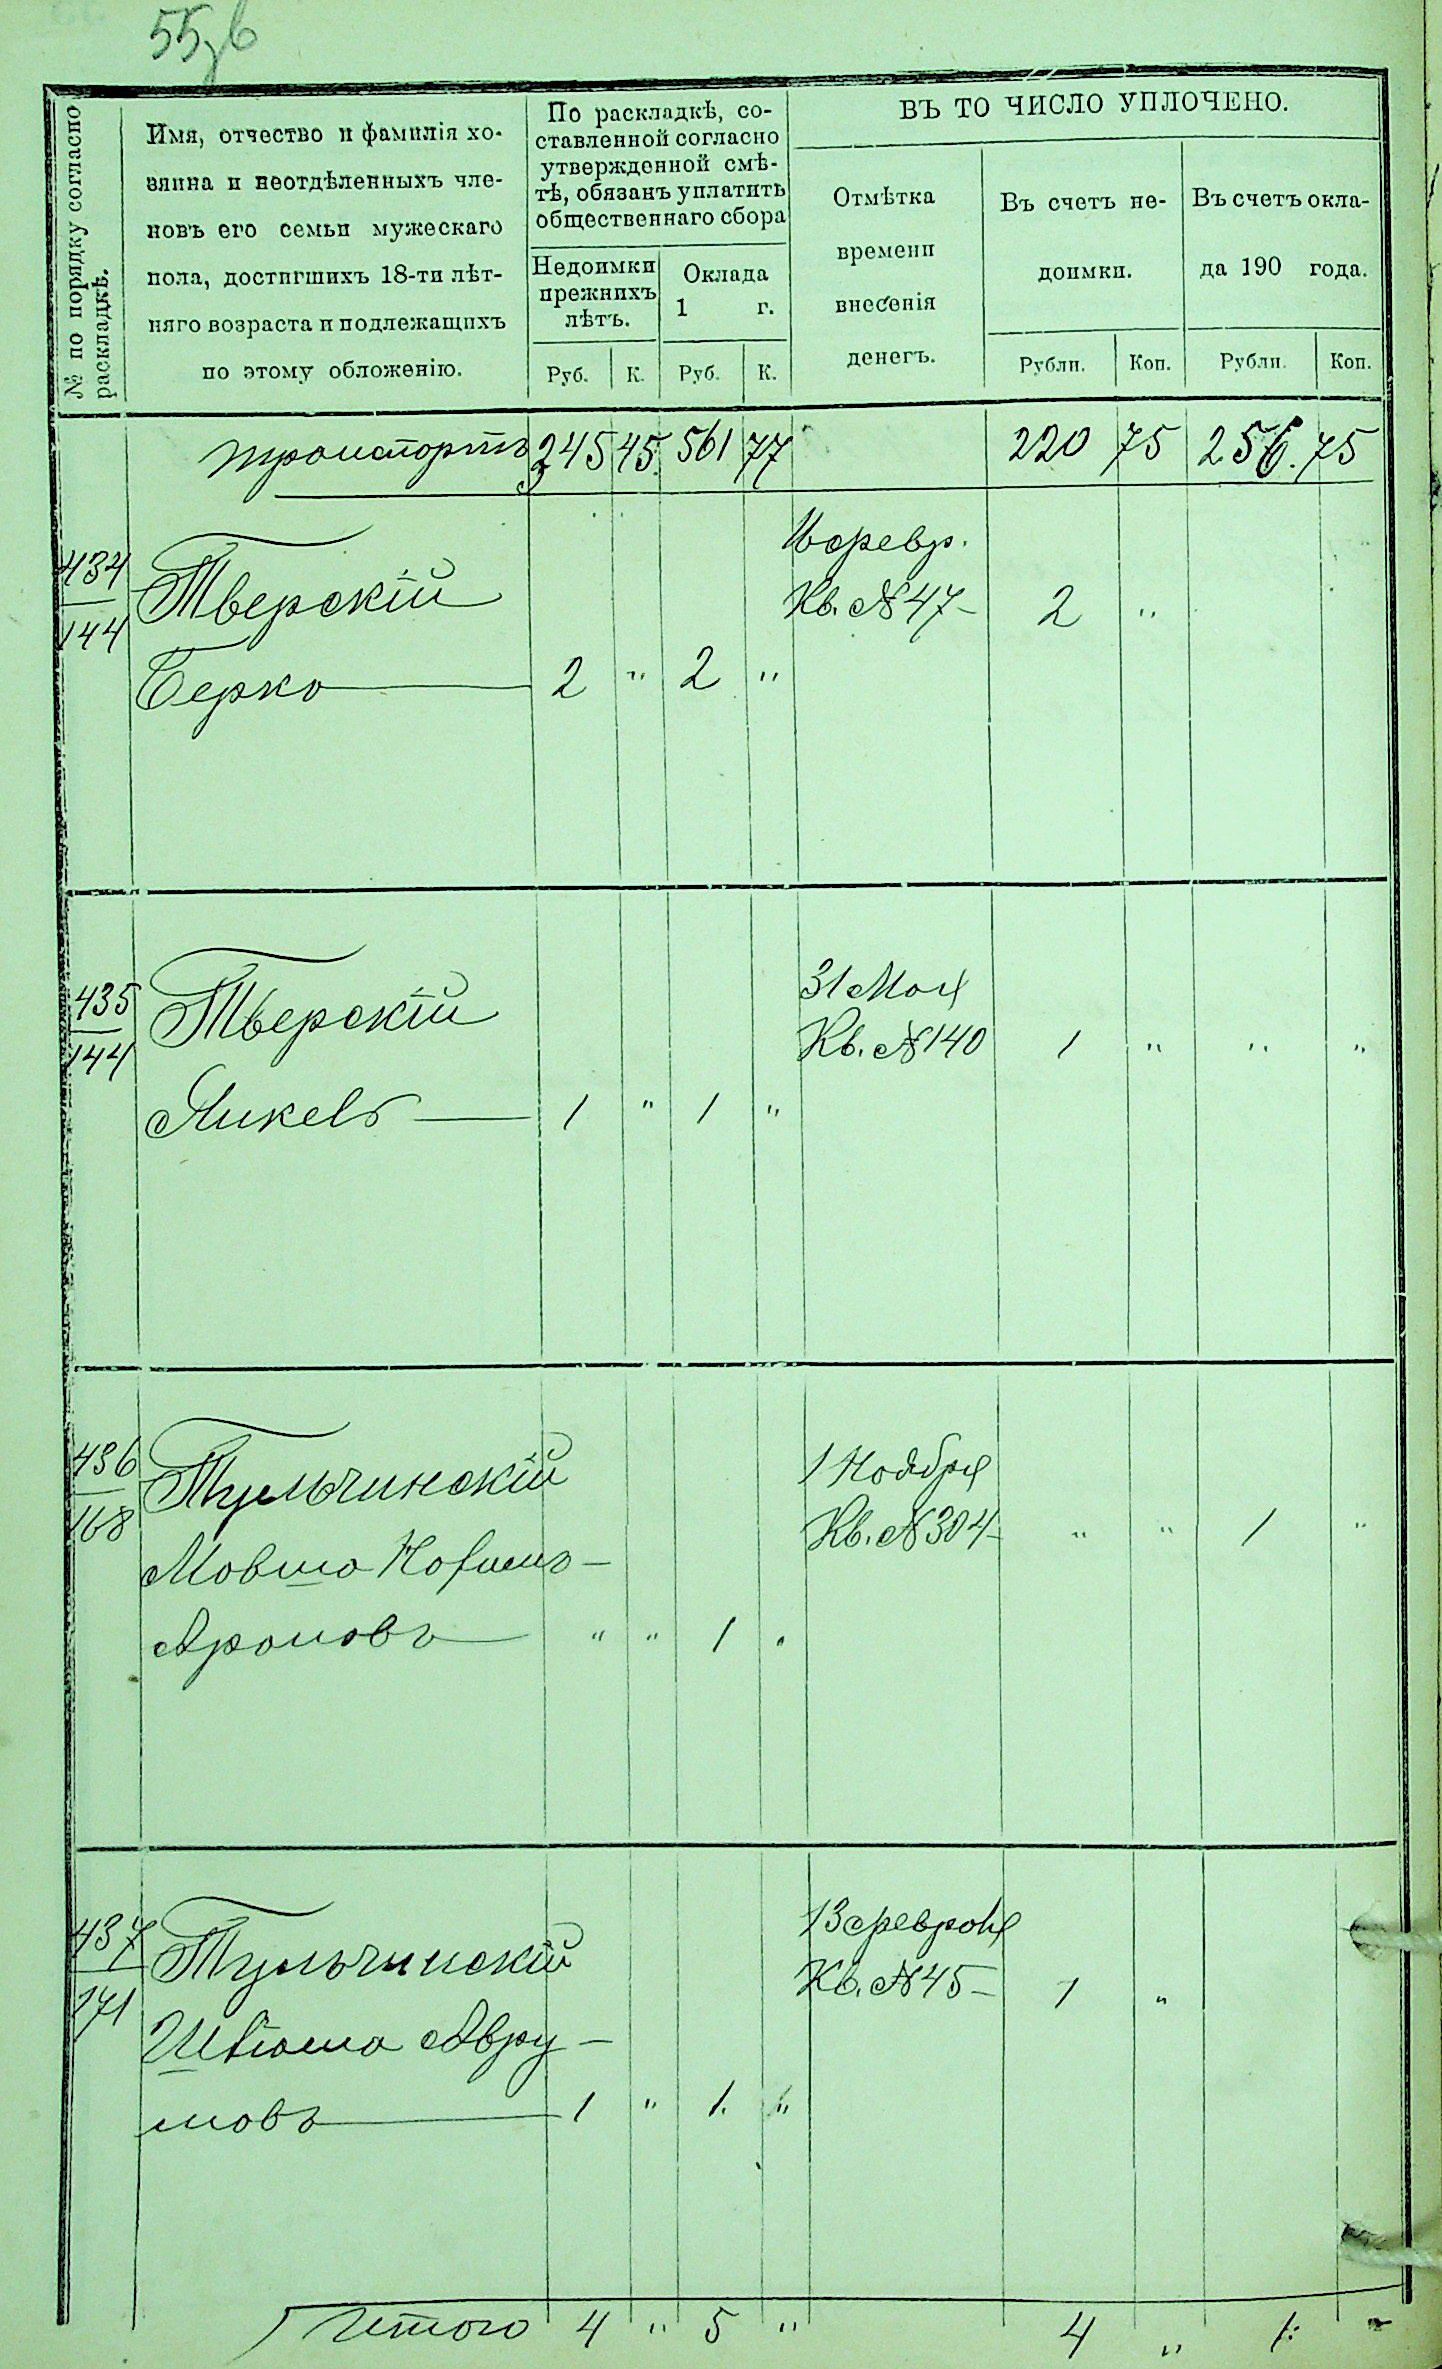 55 об
№ по порядку согласно
раскладкѣ.
Имя, отчество и фамилія хо-
зяина и неотдѣленныхъ чле-
новъ его семьи мужескаго
пола, достигшихъ 18-ти лѣт-
няго возраста и подлежащихъ
по этому обложенію.
По раскладкѣ, со-
ставленной согласно
утвержденной смѣ-
тѣ, обязанъ уплатить
общественнаго сбора
Недоимки
прежнихъ
лѣтъ.
Оклада
1 г.
Руб. К. Руб. К.
ВЪ ТО ЧИСЛО УПЛОЧЕНО.
Отмѣтка
времени
внесенія
денегъ.
Въ счетъ не-
доимки.
Въ счетъ окла-
да 190 года.
Рубли. Коп. Рубли. Коп.
Транспортъ 245 45 561 77 220 75 256. 75
434
144
Тверскій
Берко 2 " 2 "
февр.
Кв. № 47 - 2 "
435
144
Тверскій
Янкев 1 " 1 "
31 Мая
Кв. № 140 1 " " "
436
168
Тульчинскій
Мовша
Ароновъ " " 1 "
1 Ноября
Кв. № 304 - " " 1 "
437
171
Тульчинскій
Авру-
мовъ 1 " 1. "
13 февраля
Кв. № 45 - 1 "
Итого 4 " 5 " 4 " 1: "